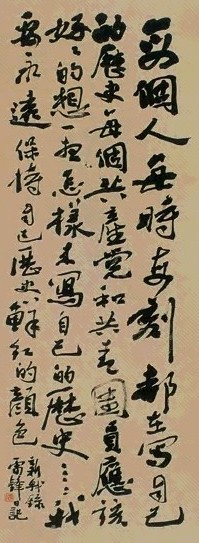 每個人每時每刻都在寫自己
的歷史每個共產党和共青團員應該
好好的想一想怎樣來寫自己的歷史……我
要永遠保持自己歷史鮮紅的顏色
新我錄
雷鋒日記